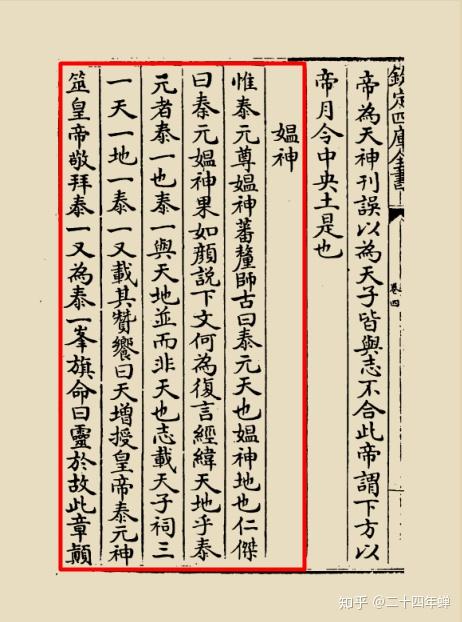 欽定四庫全書
卷四
帝為天神刊誤以為天子皆與志不合此帝謂下方以
帝月令中央土是也
媪神
惟泰元尊媪神蕃釐師古曰泰元天也媪神地也仁傑
曰泰元媪神果如顔說下文何為復言經緯天地乎泰
元者泰一也泰一與天地並而非天也志載天子祠三
一天一地一泰一又載其贊饗曰天增授皇帝泰元神
筞皇帝敬拜泰一又為泰一峯旗命曰靈於故此章顛
知乎 @二十四年蝉